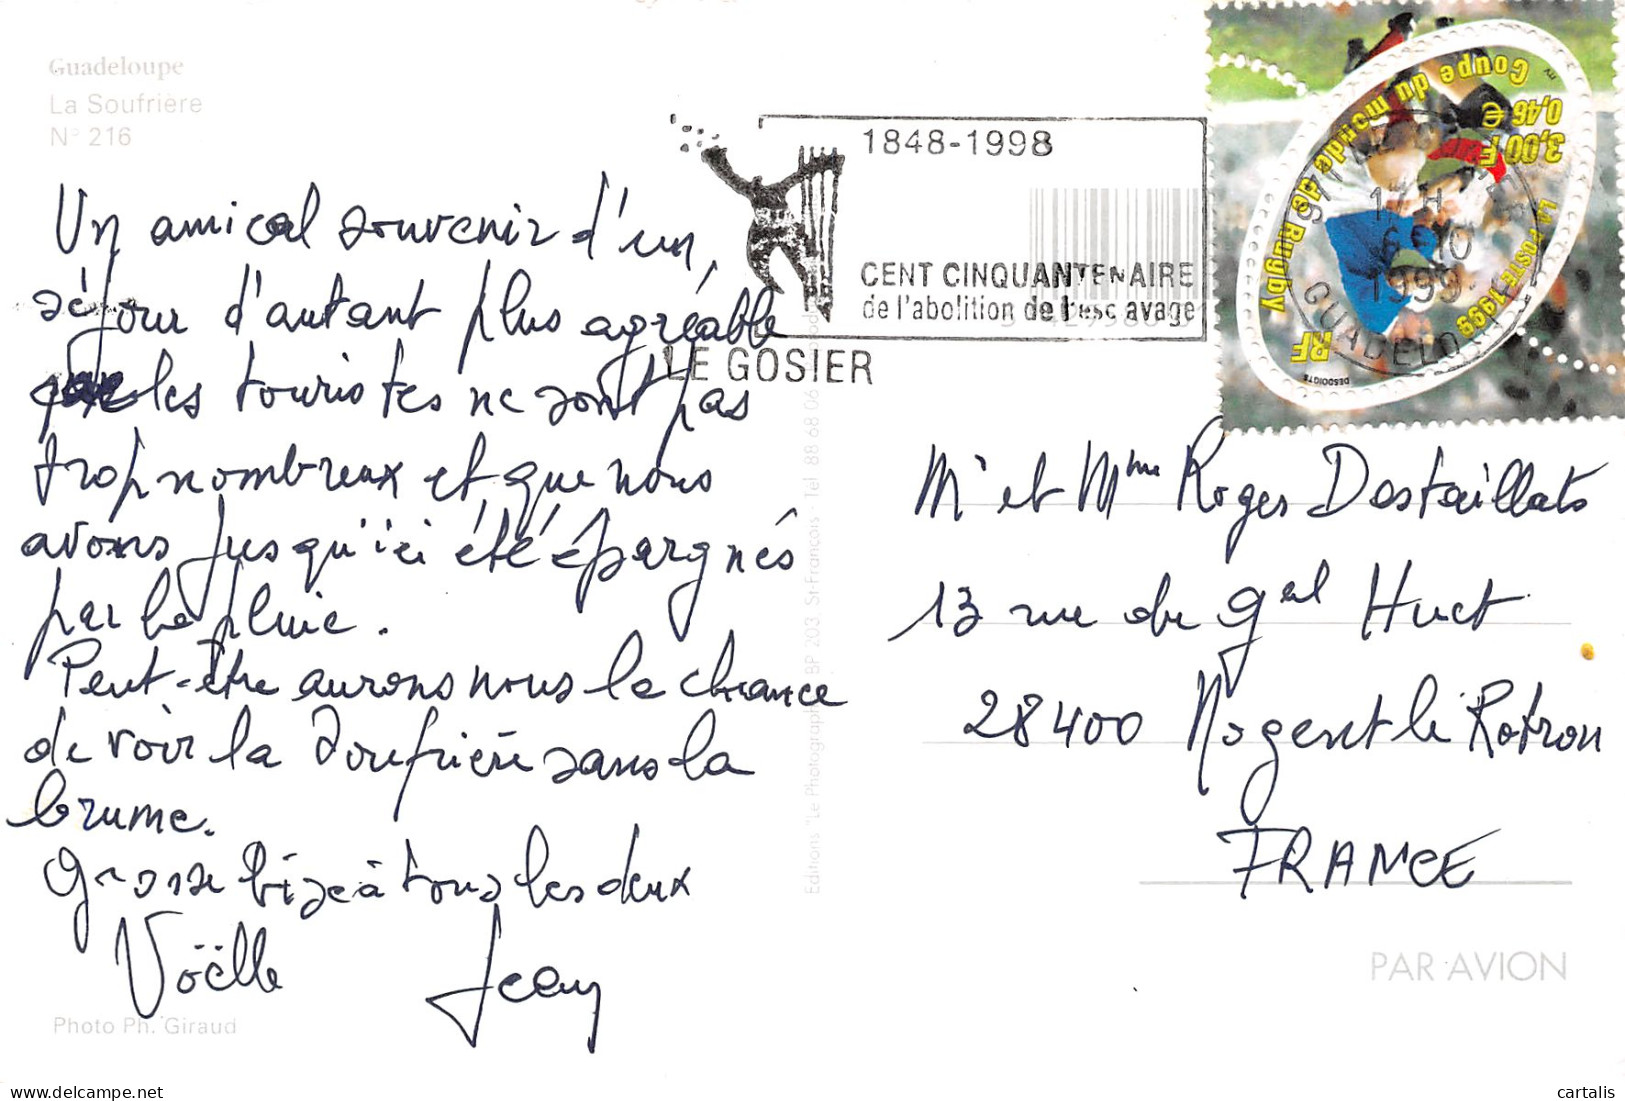 Guadeloupe
La Soufrière
N° 216
Un amical souvenir d'un
séjour d'autant plus agréable
que les touristes ne sont pas
trop nombreux et que nous
avons jusqu'ici été épargnés
par la pluie.
Peut-être aurons nous la chance
de voir la Soufrière sans la
brume.
Grosse bise à tous les deux
Noëlle Jean
Photo Ph. Giraud
Editions "Le Photographe" BP 203 St-François - Tel 88 68 06
1848-1998
CENT CINQUANTENAIRE
de l'abolition de l'esclavage
LE GOSIER
Coupe du monde de Rugby
0,46 €
3,00 F
LA POSTE 1999
RF
17 H
6 10
1999
GUADELOUPE
Mr et Mme Roger Destaillats
13 rue du gal Huet
28400 Nogent le Rotrou
FRANCE
PAR AVION
cartalis